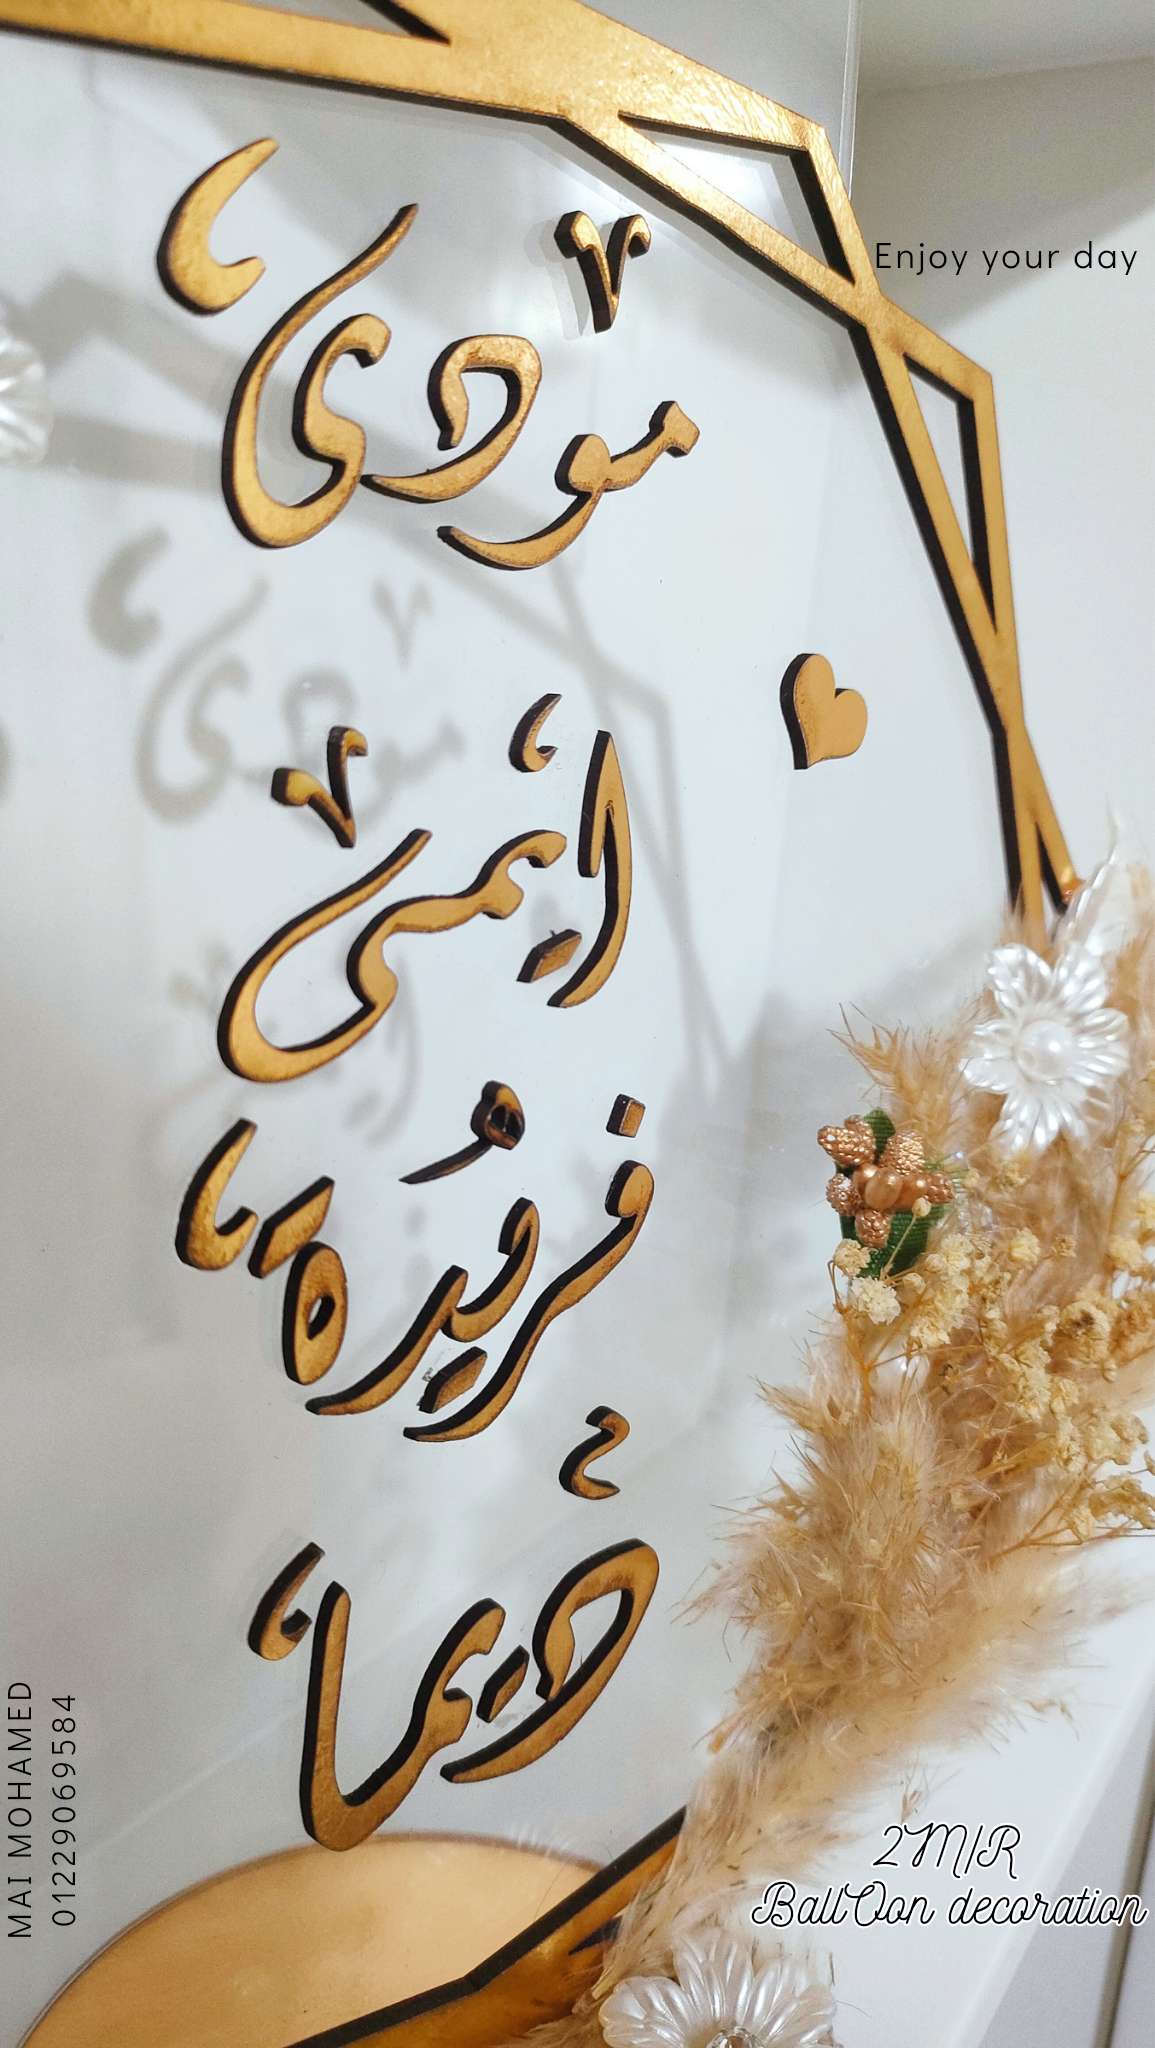 Enjoy your day
مودى
ايمى
فريدة
ديما
MAI MOHAMED
01229069584
2M/R
BallOon decoration